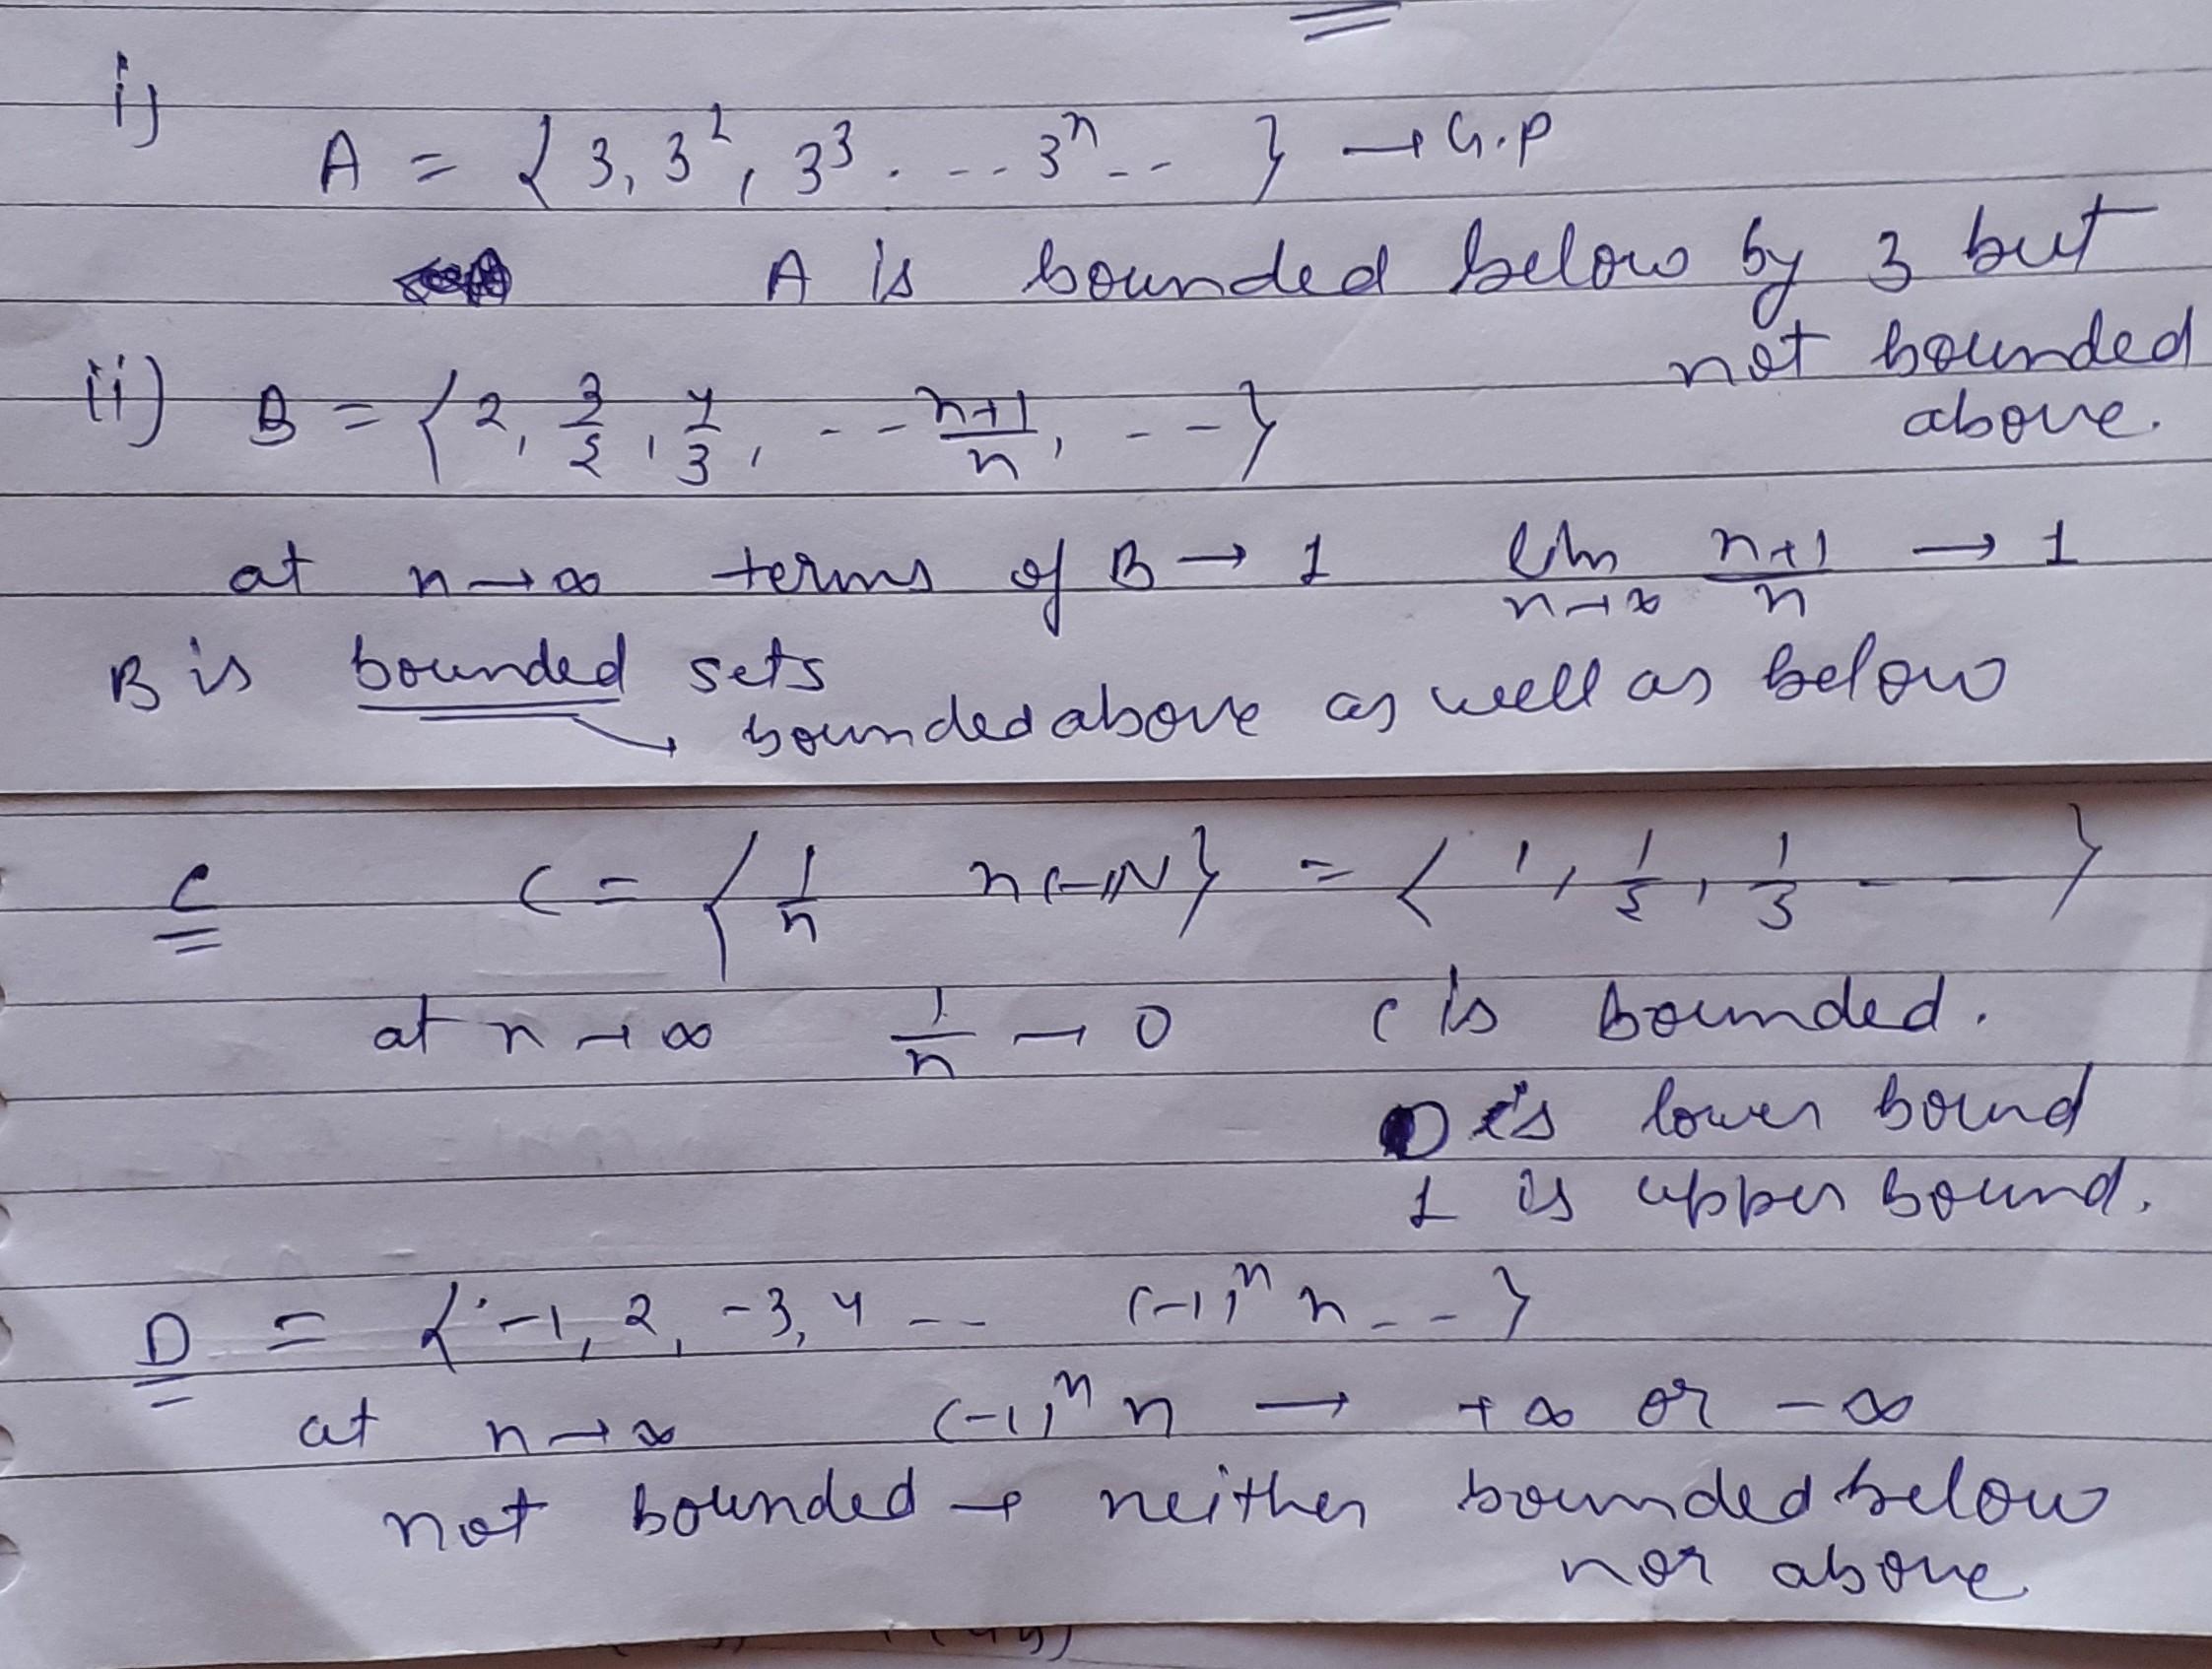 i)
A = { 3, 3², 3³ . - - . 3ⁿ - - } → G.P
A is bounded below by 3 but
not bounded
above.
ii) B = { 2, 3/2, 4/3, - - n+1/n, - - }
at n→∞ terms of B → 1 lim n→∞ n+1/n → 1
B is bounded sets
→ bounded above as well as below
C C = { 1/n n∈N } = { 1, 1/2, 1/3 - - }
at n→∞ 1/n → 0 C is bounded.
0 is lower bound
1 is upper bound.
D = { -1, 2, -3, 4 - - (-1)ⁿ n - - }
at n→∞ (-1)ⁿ n → +∞ or -∞
not bounded → neither bounded below
nor above